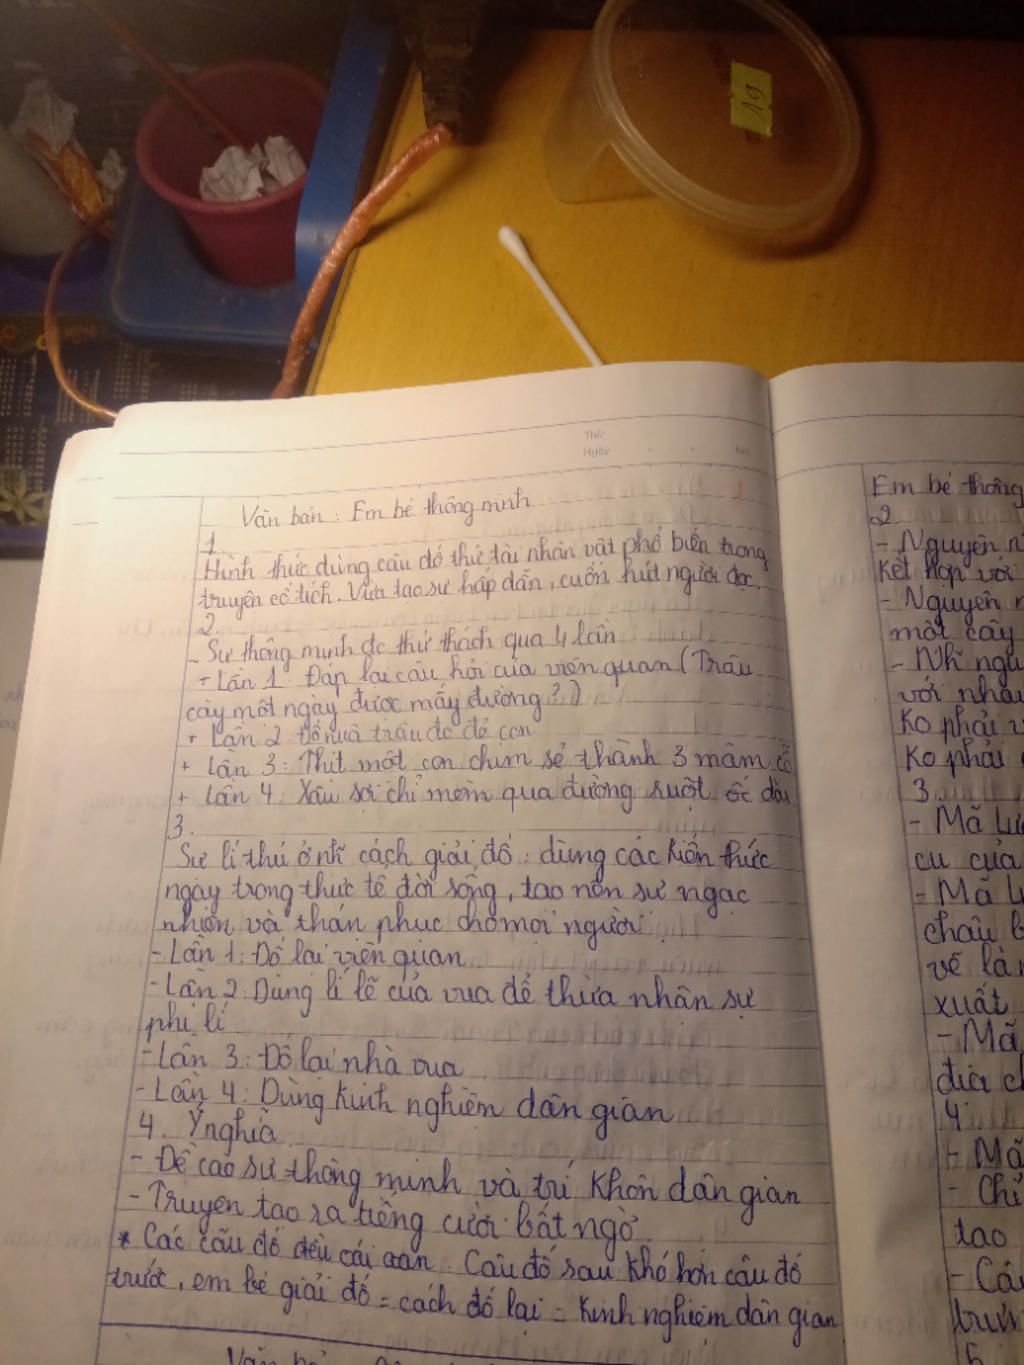 19
Thứ
Ngày
No.
Văn bản: Em bé thông minh
1.
Hình thức dùng câu đố thử tài nhân vật phổ biến trong
truyện cổ tích. Vừa tạo sự hấp dẫn, cuốn hút người đọc.
2.
- Sự thông minh đc thử thách qua 4 lần
+ Lần 1: Đáp lại câu hỏi của viên quan (Trâu
cày một ngày được mấy đường?)
+ Lần 2 trâu đc đẻ con
+ Lần 3: Thịt một con chim sẻ thành 3 mâm cỗ
+ Lần 4: Xâu sợi chỉ mềm qua đường ruột ốc dài
3.
Sự lí thú ở cách giải đố: dùng các kiến thức
ngay trong thực tế đời sống, tạo nên sự ngạc
nhiên và thán phục cho mọi người
- Lần 1: Đố lại viên quan
- Lần 2: Dùng lí lẽ của vua để thừa nhận sự
phi lí
- Lần 3: Đố lại nhà vua
- Lần 4: Dùng kinh nghiệm dân gian
4. Ý nghĩa
- Đề cao sự thông minh và trí khôn dân gian
- Truyện tạo ra tiếng cười bất ngờ.
* Các câu đố đều oái oăn. Câu đố sau khó hơn câu đố
trước, em bé giải đố = cách đố lại = kinh nghiệm dân gian
Văn
Em bé thông
2.
- Nguyên
kết hợp với
- Nguyên
một cây
- Nhĩ
với
Ko phải
Ko phải
3.
- Mã
cụ của
- Mã
châu
vẽ
xuất
- Mã
địa
4.
- Mã
- Chỉ
tạo
-
5.